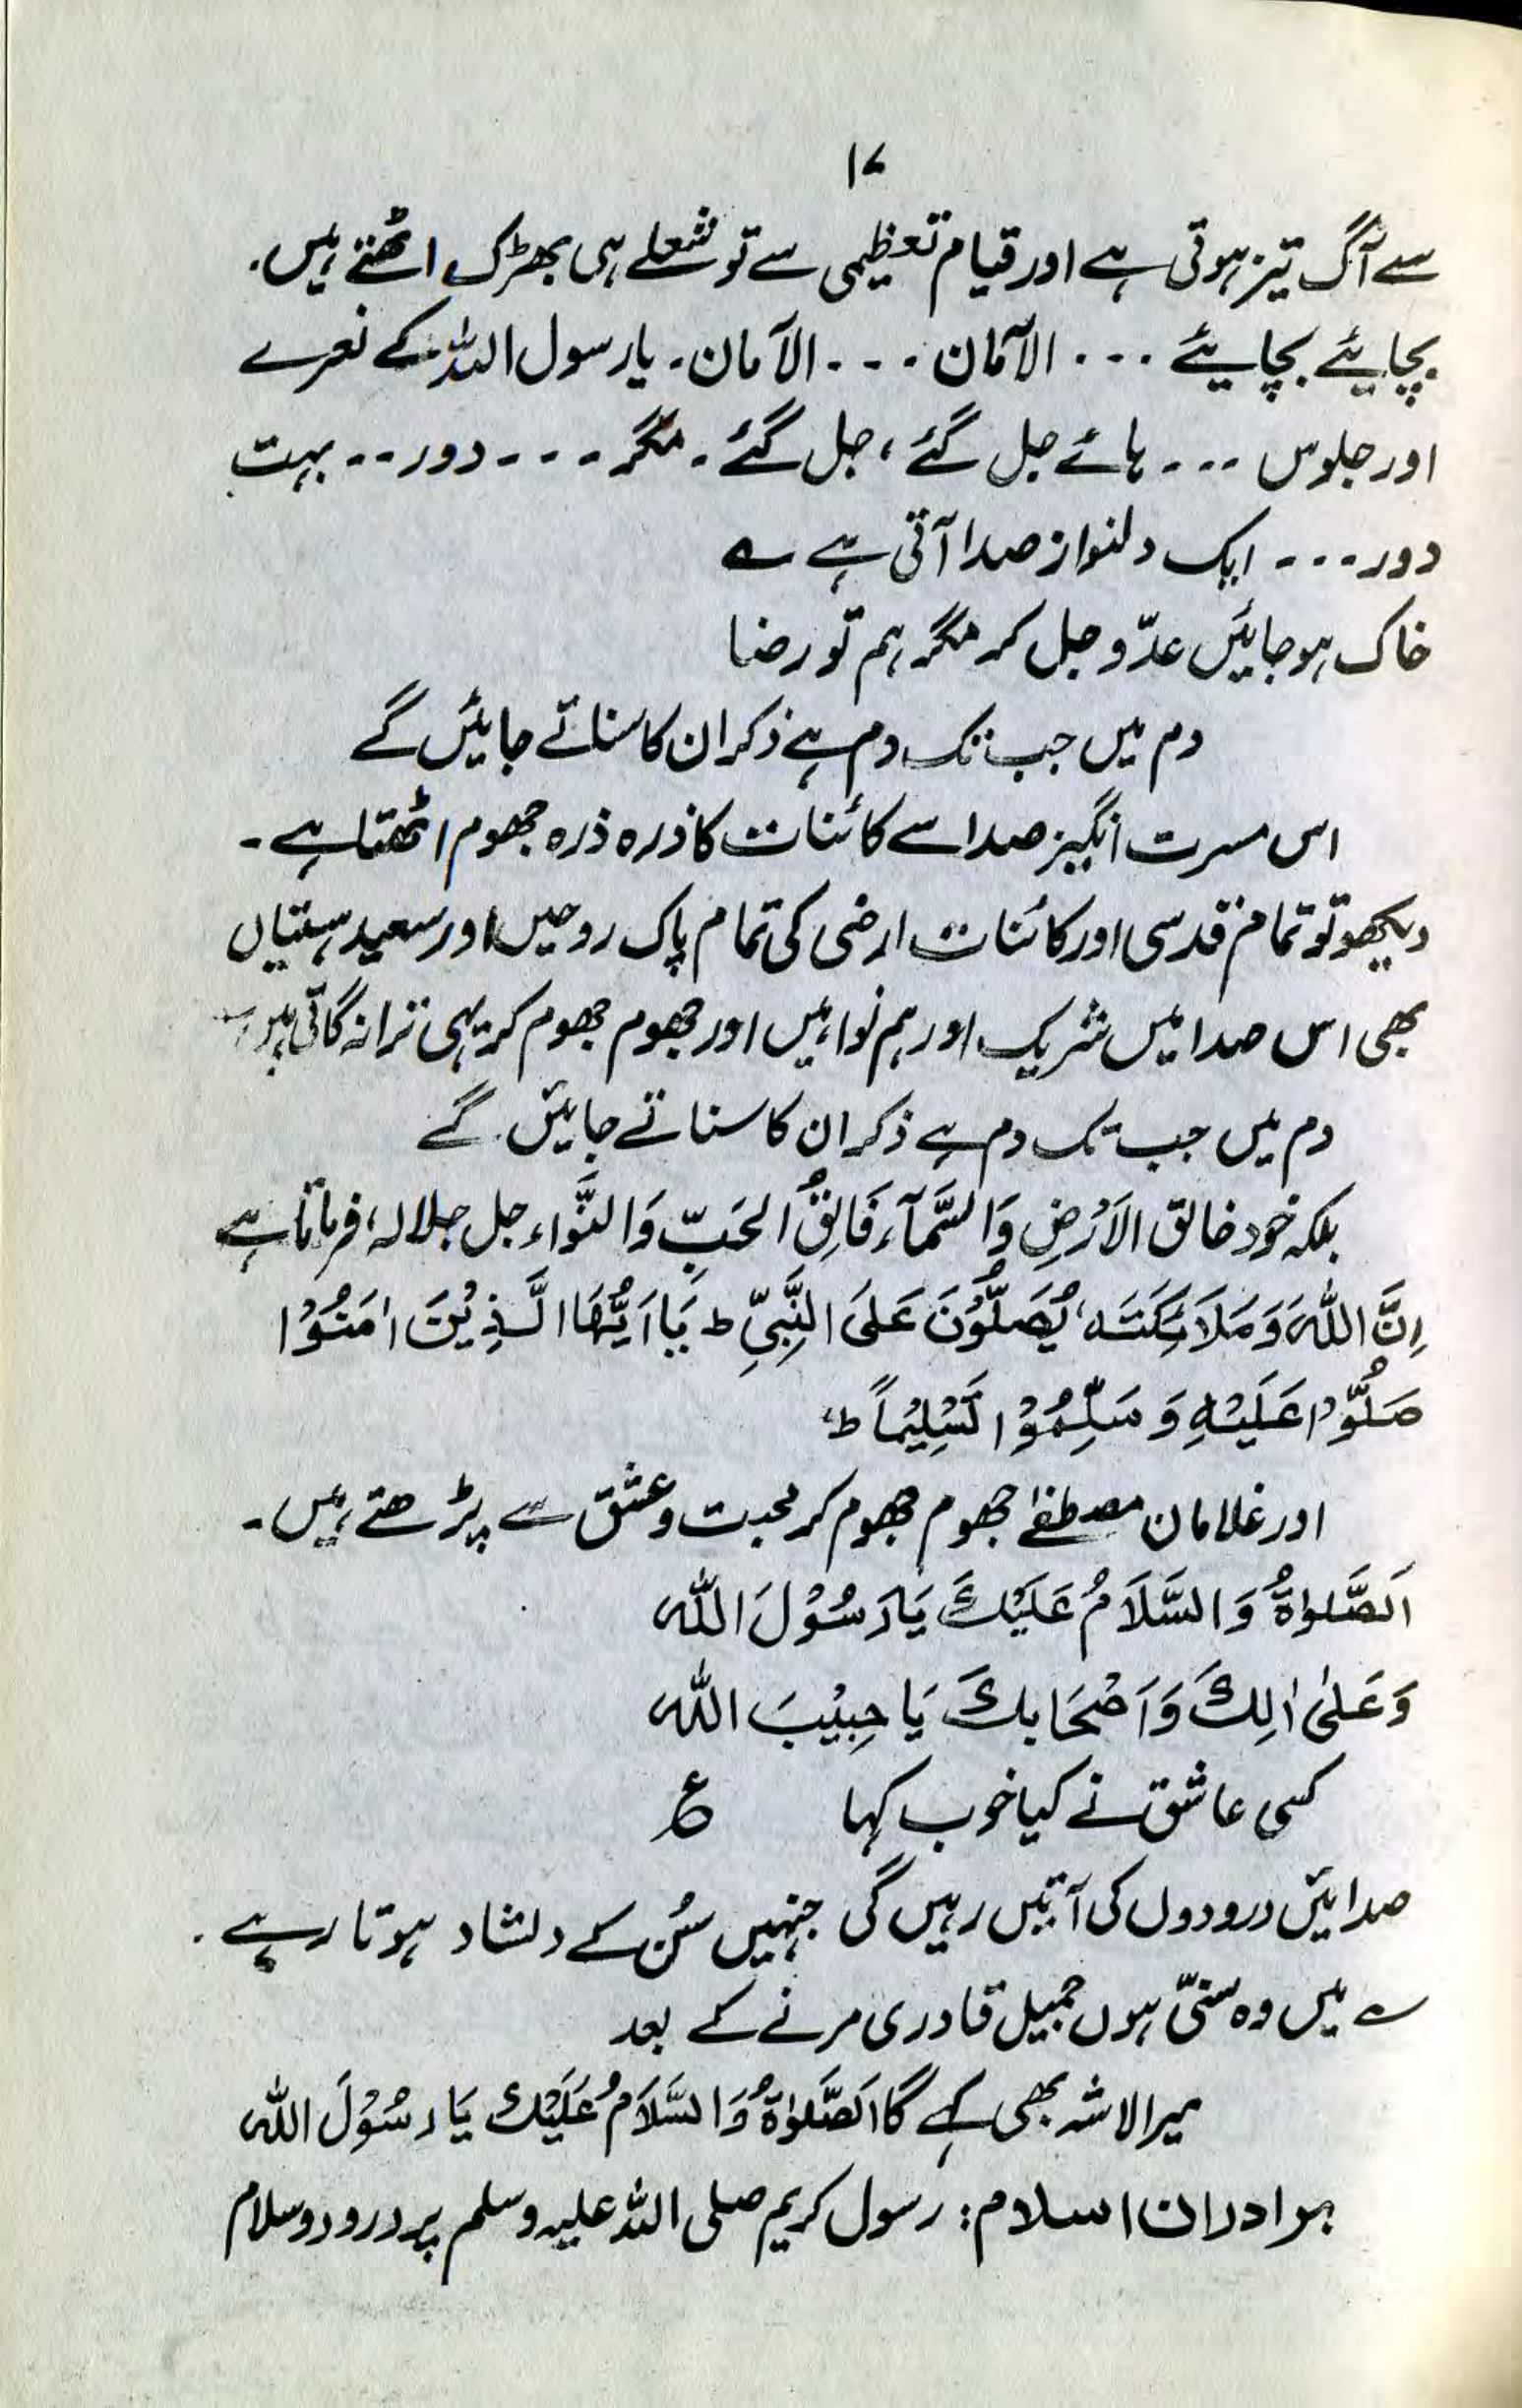 ۱۷
سے آگ تیز ہوتی ہے اور قیام تعظیمی سے تو شعلے ہی بھڑک اٹھتے ہیں.
بچایئے بچایئے ۔۔۔ الآمان ۔۔۔ الآمان۔ یا رسول اللہ کے نعرے
اور جلوس ۔۔۔ ہائے جل گئے، جل گئے۔ مگر ۔۔۔ دور ۔۔ بہت
دور ۔۔۔ ایک دلنواز صدا آتی ہے ؎
خاک ہو جایئں عدّو جل کر مگر ہم تو رضا
دم میں جب تک دم ہے ذکر ان کا سناتے جایئں گے
اس مسرت انگیز صدا سے کائنات کا ذرہ ذرہ جھوم اٹھتا ہے ۔
دیکھو تو تمام قدسی اور کائنات ارضی کی تمام پاک روحیں اور سعید ہستیاں
بھی اس صدا میں شریک اور ہم نوا ہیں اور جھوم جھوم کر یہی ترانہ گاتی ہیں ؎
دم میں جب تک دم ہے ذکر ان کا سناتے جایئں گے
بلکہ خود خالق الَارْضِ وَالسَّمآء، فَالِقُ الحَبِّ وَالنَّواء جل جلالہ، فرماتا ہے
اِنَّ اللّٰہَ وَمَلَائِکَتَہ، یُصَلُّوْنَ عَلَی النَّبِیِّ ط یَا اَیُّھَا الَّذِیْنَ اٰمَنُوْا
صَلُّوْا عَلَیْہِ وَ سَلِّمُوْا تَسْلِیْماً ط،
اور غلامان مصطفےٰ جھوم جھوم کر محبت و عشق سے پڑھتے ہیں ۔
اَلصَّلوٰۃُ وَالسَّلَامُ عَلَیْکَ یَا رَسُوْلَ اللّٰہ
وَعَلیٰ اٰلِکَ وَاَصْحَابِکَ یَا حِبِیْبَ اللّٰہ
کسی عاشق نے کیا خوب کہا ؏
صدایئں درودوں کی آتیں رہیں گی جنہیں سُن کے دلشاد ہوتا رہے .
؎ میں وہ سنّی ہوں جمیل قادری مرنے کے بعد
میرا لاشہ بھی کہے گا اَلصَّلوٰۃُ وَالسَّلَامُ عَلَیْکَ یَا رَسُوْلَ اللّٰہ
برادران اسلام: رسول کریم صلی اللہ علیہ وسلم پر درود و سلام